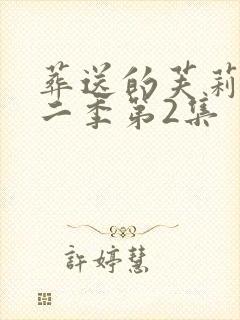 葬送的芙莉
二季第2集
許婷慧